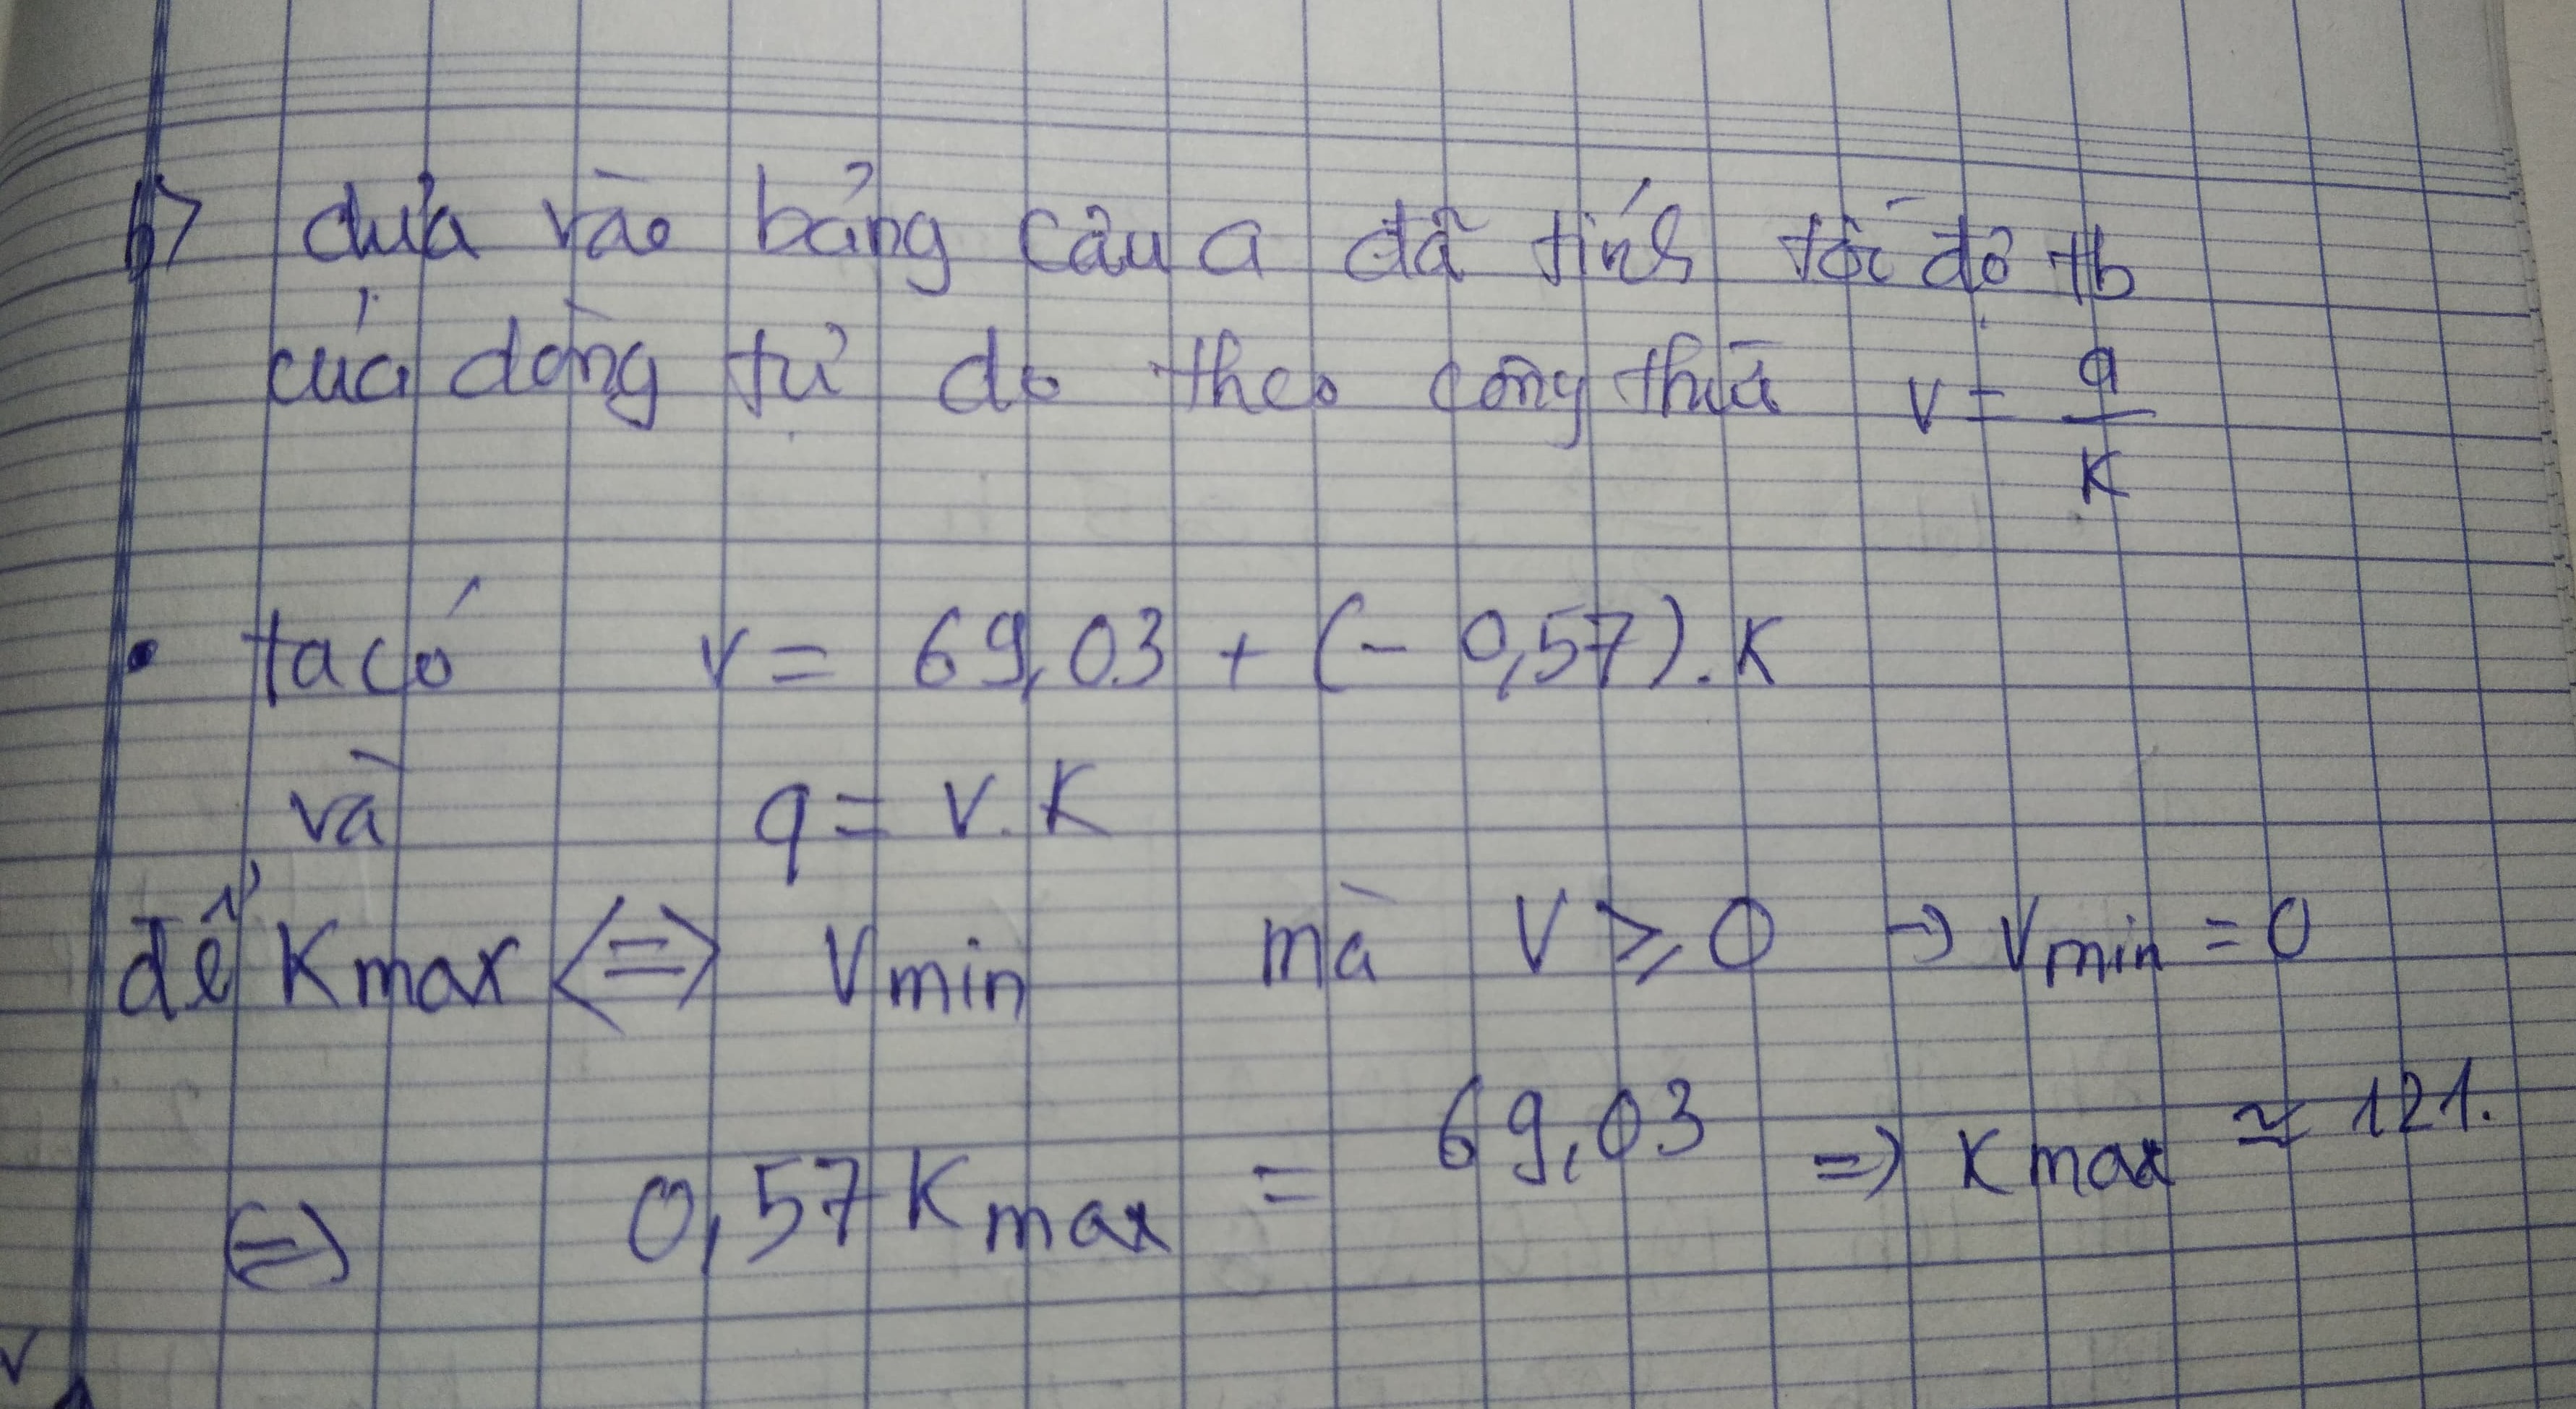 b> dựa vào bảng câu a đã tính tốc độ tb
của dòng tự do theo công thức v = q/K
• ta có v = 69,03 + (- 0,57).K
và q = v.K
để Kmax <=> Vmin mà V ≥ 0 → Vmin = 0
<=> 0,57Kmax = 69,03 => Kmax ≃ 121.